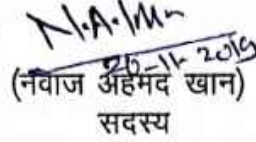 N.A.Khan
20-11-2019
(नवाज अहमद खान)
सदस्य